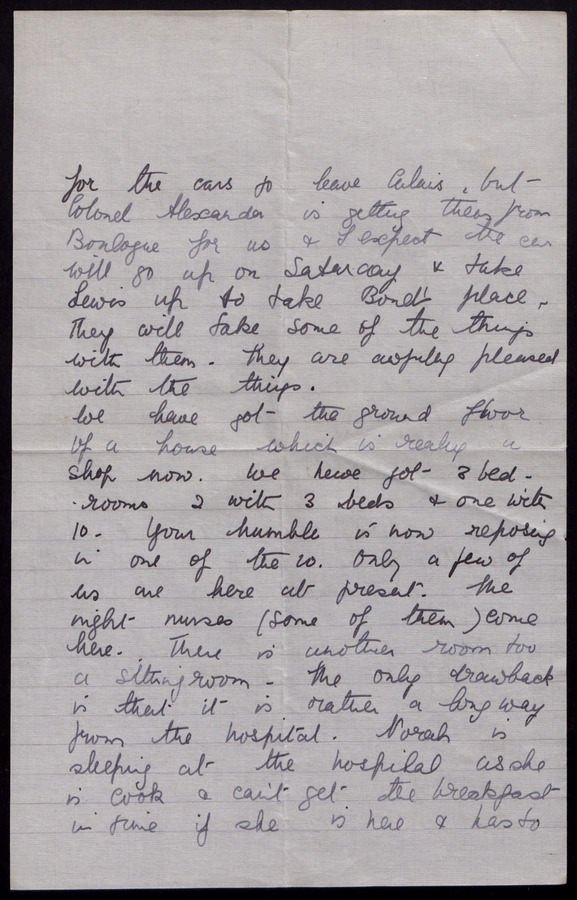 for the cars to leave Calais, but
Colonel Alexander is getting them from
Boulogne for us & I expect the car
will go up on Saturday & take
Lewis up to take Bond's place.
They will take some of the things
with them. They are awfully pleased
with the things.
We have got the ground floor
of a house which is really a
shop now. We have got 3 bed-
rooms 2 with 3 beds & one with
10. Your humble is now reposing
in one of the 10. Only a few of
us are here at present. The
night nurses (some of them) come
here. There is another room too
a sitting room - The only drawback
is that it is rather a long way
from the hospital. Norah is
sleeping at the hospital as she
is cook & can't get the breakfast
in time if she is here & has to